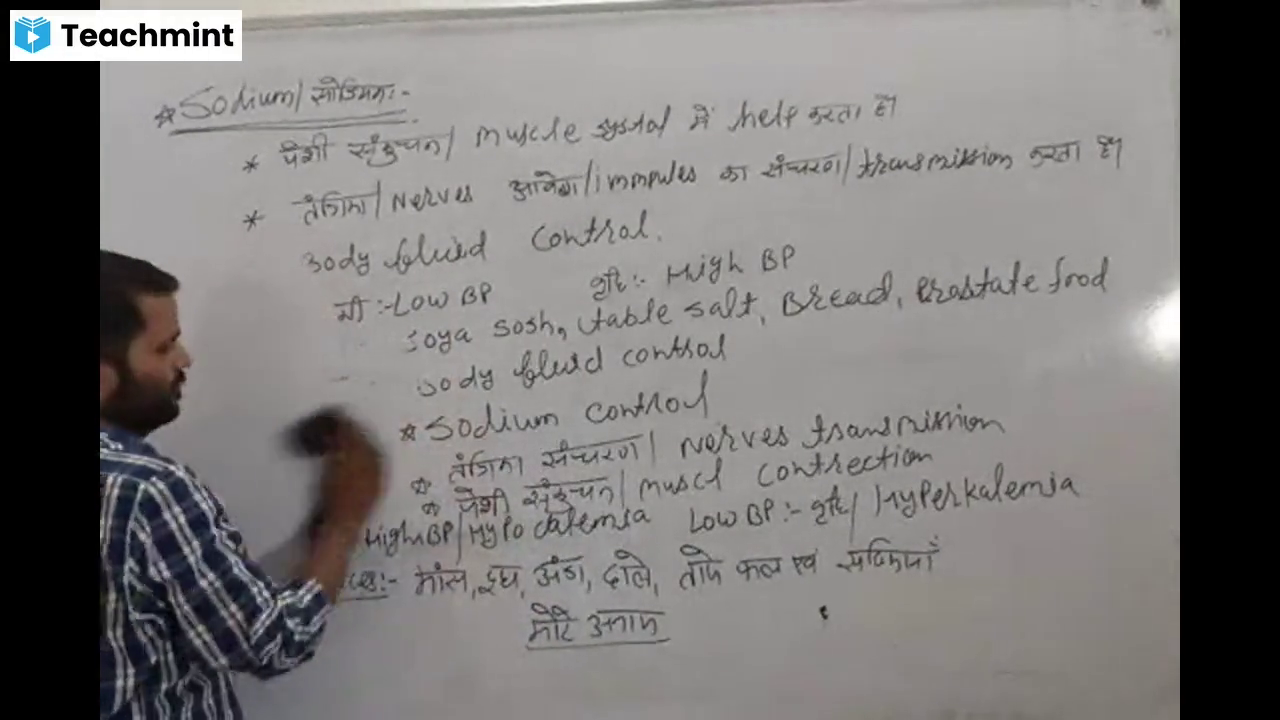 Teachmint
* Sodium/सोडियम:-
* पेशी संकुचन/ muscle में help करता है।
* तंत्रिका/Nerves आवेश/immpules का संचरण/transmission करता है।
Body fluid control.
कमी :- LOW BP वृद्धि:- High BP
soya sosh, table salt, Bread, food
Body fluid control
* Sodium control
* तंत्रिका संचरण/ Nerves transmission
* पेशी संकुचन/ muscl contrection
High BP/ LOW BP:- वृद्धि/ Hyperkalemia
:- मांस, दूध, अंडा, दाले, ताजे फल एवं सब्जियाँ
मोटे अनाज